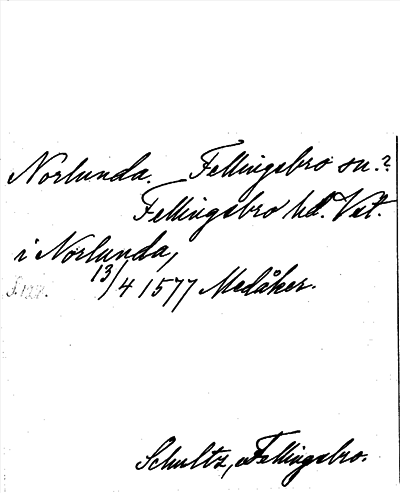 Norlunda. Fellingsbro sn.?
Fellingsbro hd. Vstl.
i Norlunda,
13/4 1577 Medåker.
Schultz, Fellingsbro.